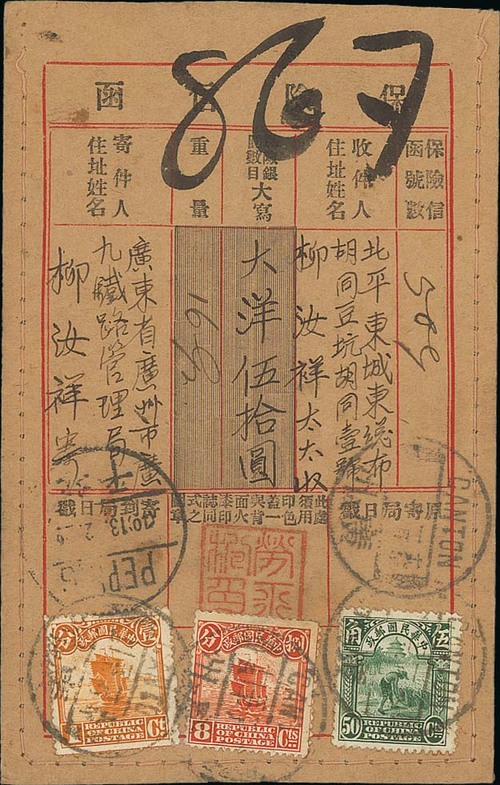 保險信函
保險信
函號數
589
收件人
住址姓名
北平東城東總布
胡同豆坑胡同壹號
柳汝祥太太收
大寫
大洋伍拾圓
重量
16
寄件人
住址姓名
廣東省廣州市廣
九鐵路管理局
柳汝祥寄
原寄局日戳
寄到局日戳
此處
須用
印色
CANTON
PEP
中華民國郵政
壹 分
1 Ct.
REPUBLIC
OF CHINA
POSTAGE
中華民國郵政
捌 分
8 Cts
REPUBLIC
OF CHINA
POSTAGE
中華民國郵政
伍 角
50 Cts
REPUBLIC
OF CHINA
POSTAGE